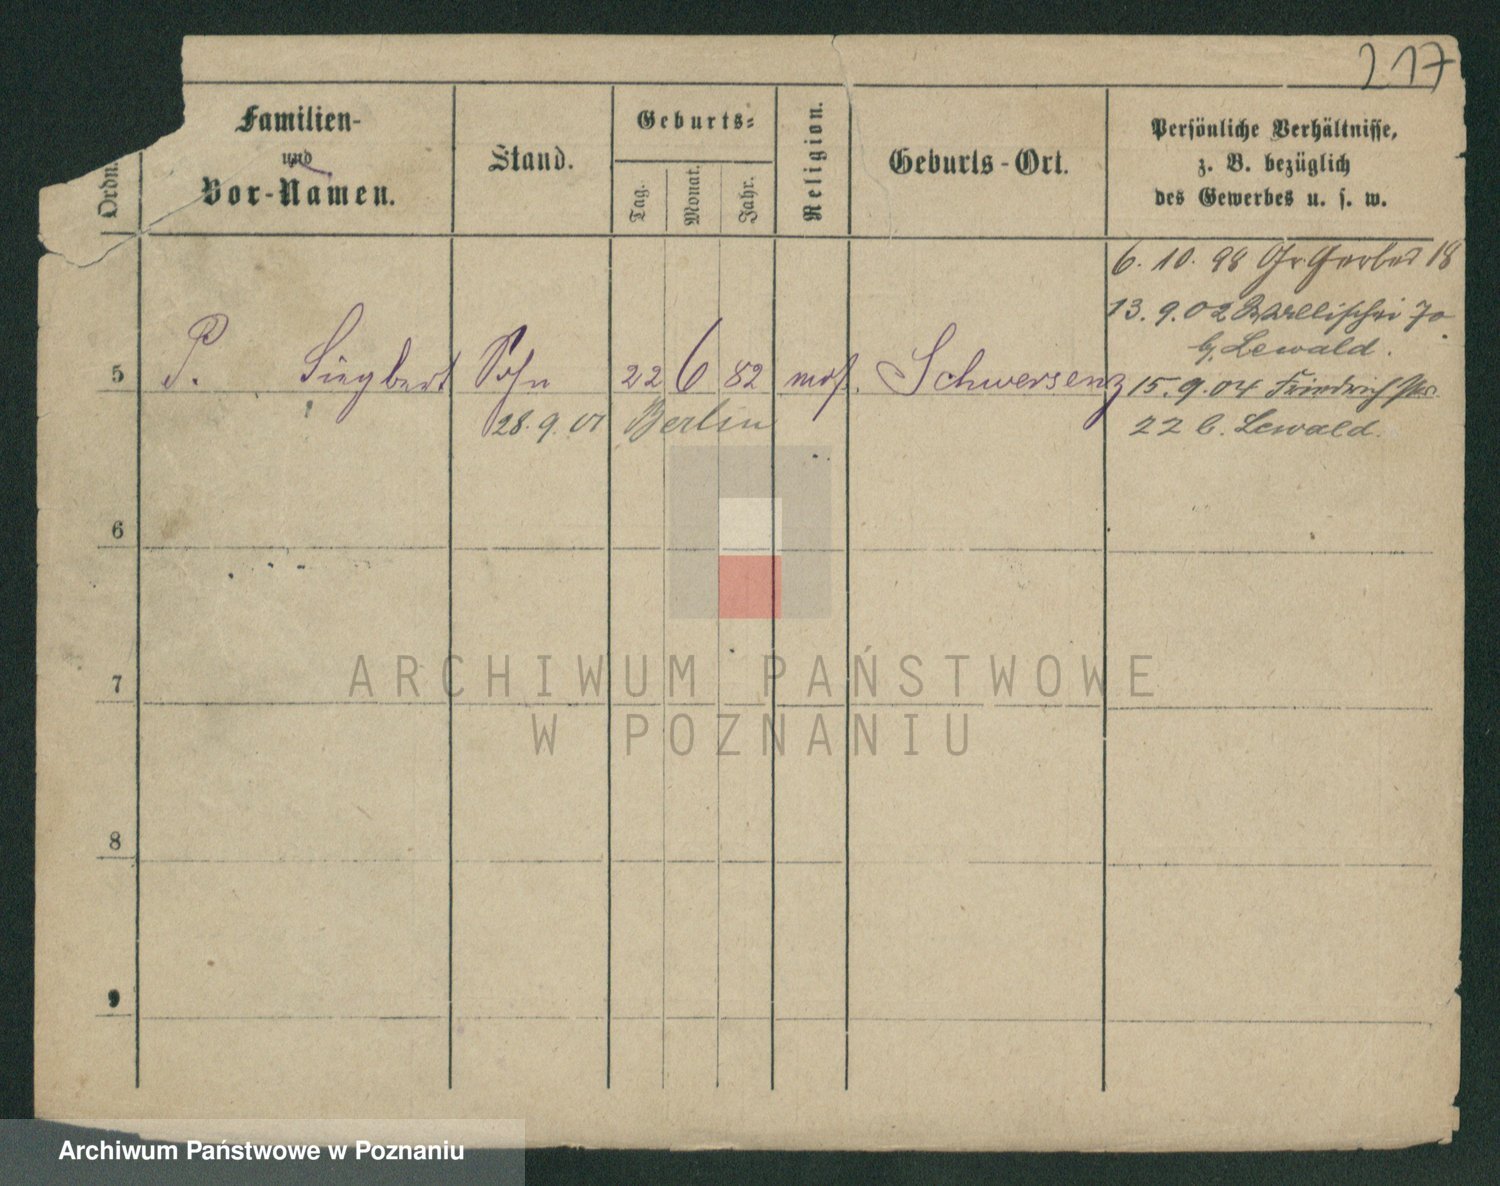 217
Ordn.
Familien-
und
Vor-Namen.
Stand.
Geburts-
Tag.
Monat.
Jahr.
Religion.
Geburts-Ort.
Persönliche Verhältnisse,
z. B. bezüglich
des Gewerbes u. s. w.
6. 10. 98 Gr Gerber 18
13. 9. 02 Wallischei
b. Lewald.
5 P. Siegbert Sohn 22 6 82 mos. Schwersenz 15. 9. 04 Friedrichstr.
28. 9. 01 Berlin 22 b. Lewald.
6
7
8
9
ARCHIWUM PAŃSTWOWE
W POZNANIU
Archiwum Państwowe w Poznaniu